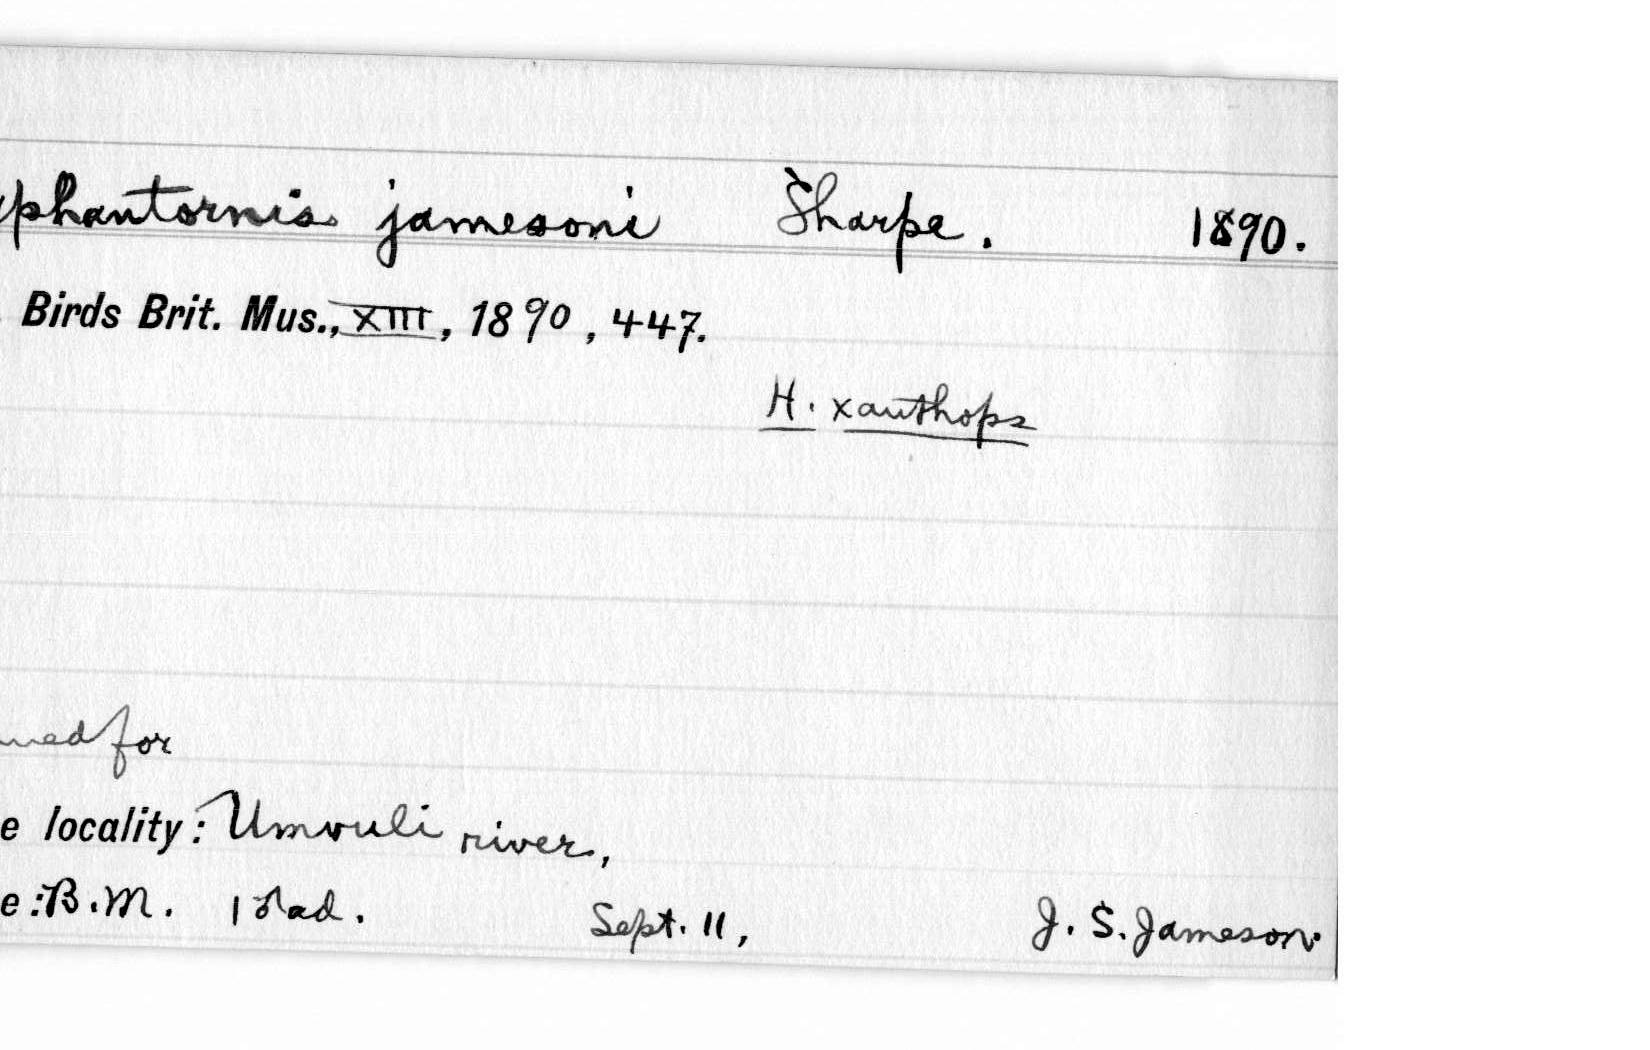 phantornis jamesoni Sharpe. 1890.
. Birds Brit. Mus., XIII, 1890, 447.
H. xanthops
med for
e locality: Umvuli river,
e: B.M. 1 ♂ ad. Sept. 11, J. S. Jameson.